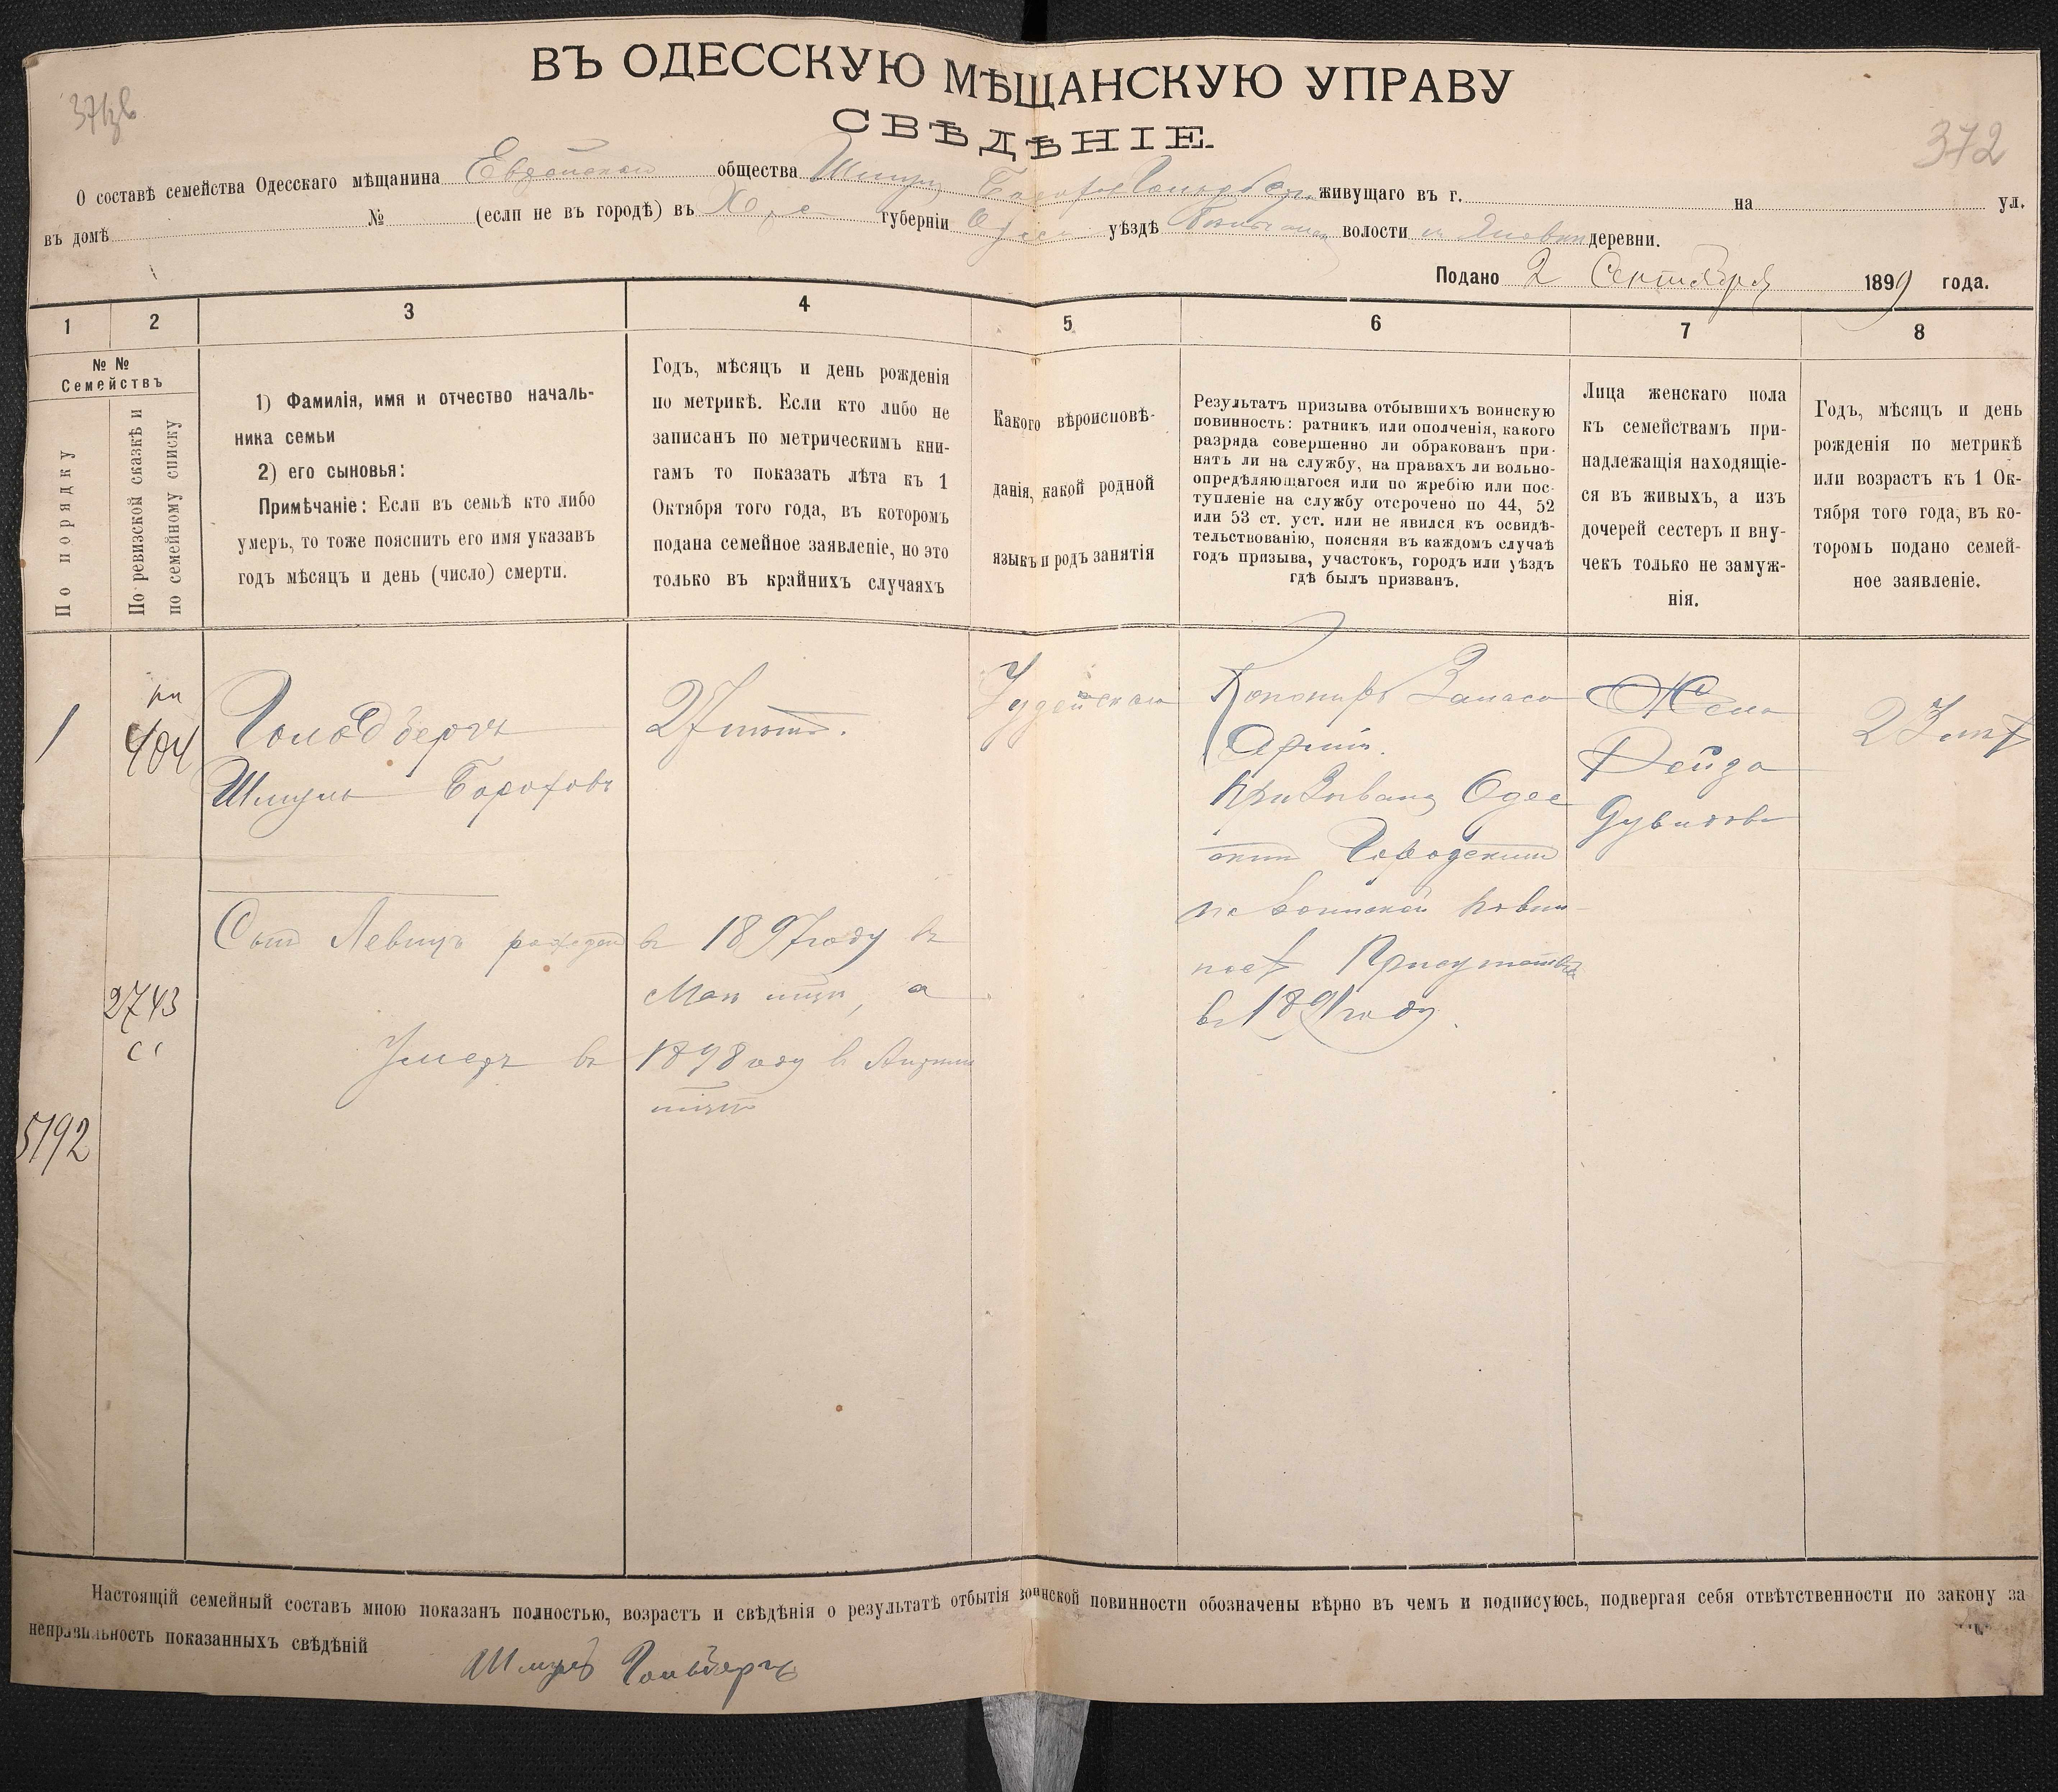 ВЪ ОДЕССКУЮ МѢЩАНСКУЮ УПРАВУ
СВѢДѢНІЕ.
372
О составѣ семейства Одесскаго мѣщанина Еврейскаго общества Шмуля живущаго въ г. на ул.
въ домѣ № (если не въ городѣ) въ Хер губерніи Одес уѣздѣ волости деревни.
Подано 2 Сентября 1899 года.
1 2 3 4 5 6 7 8
№ №
Семействъ
По порядку
По ревизской сказкѣ и
по семейному списку
1) Фамилія, имя и отчество началь-
ника семьи
2) его сыновья:
Примѣчаніе: Если въ семьѣ кто либо
умеръ, то тоже пояснить его имя указавъ
годъ мѣсяцъ и день (число) смерти.
Годъ, мѣсяцъ и день рожденія
по метрикѣ. Если кто либо не
записанъ по метрическимъ кни-
гамъ то показать лѣта къ 1
Октября того года, въ которомъ
подана семейное заявленіе, но это
только въ крайнихъ случаяхъ
Какого вѣроисповѣ-
данія, какой родной
языкъ и родъ занятія
Результатъ призыва отбывшихъ воинскую
повинность: ратникъ или ополченія, какого
разряда совершенно ли обракованъ при-
нятъ ли на службу, на правахъ ли вольно-
опредѣляющагося или по жребію или пос-
тупленіе на службу отсрочено по 44, 52
или 53 ст. уст. или не явился къ освидѣ-
тельствованію, поясняя въ каждомъ случаѣ
годъ призыва, участокъ, городъ или уѣздъ
гдѣ былъ призванъ.
Лица женскаго пола
къ семействамъ при-
надлежащія находящіе-
ся въ живыхъ, а изъ
дочерей сестеръ и вну-
чекъ только не замуж-
нія.
Годъ, мѣсяцъ и день
рожденія по метрикѣ
или возрастъ къ 1 Ок-
тября того года, въ ко-
торомъ подано семей-
ное заявленіе.
1
404
Шмуль Бороховъ
27
Іудейскаго
Запаса
Арміи.
призывался Одес
скимъ Городскимъ
по воинской повин-
ност Присутствіе
въ 1891 году
Жена
Рейза
23 лет
Сын рожден в 1897 году в
Мае а
2743
Умер в 1898 году в
5192
Настоящій семейный составъ мною показанъ полностью, возрастъ и свѣдѣнія о результатѣ отбытія воинской повинности обозначены вѣрно въ чемъ и подписуюсь, подвергая себя отвѣтственности по закону за
неправильность показанныхъ свѣдѣній
Гольберг